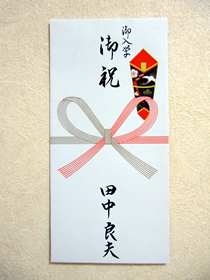 御入学
御祝
田中良夫